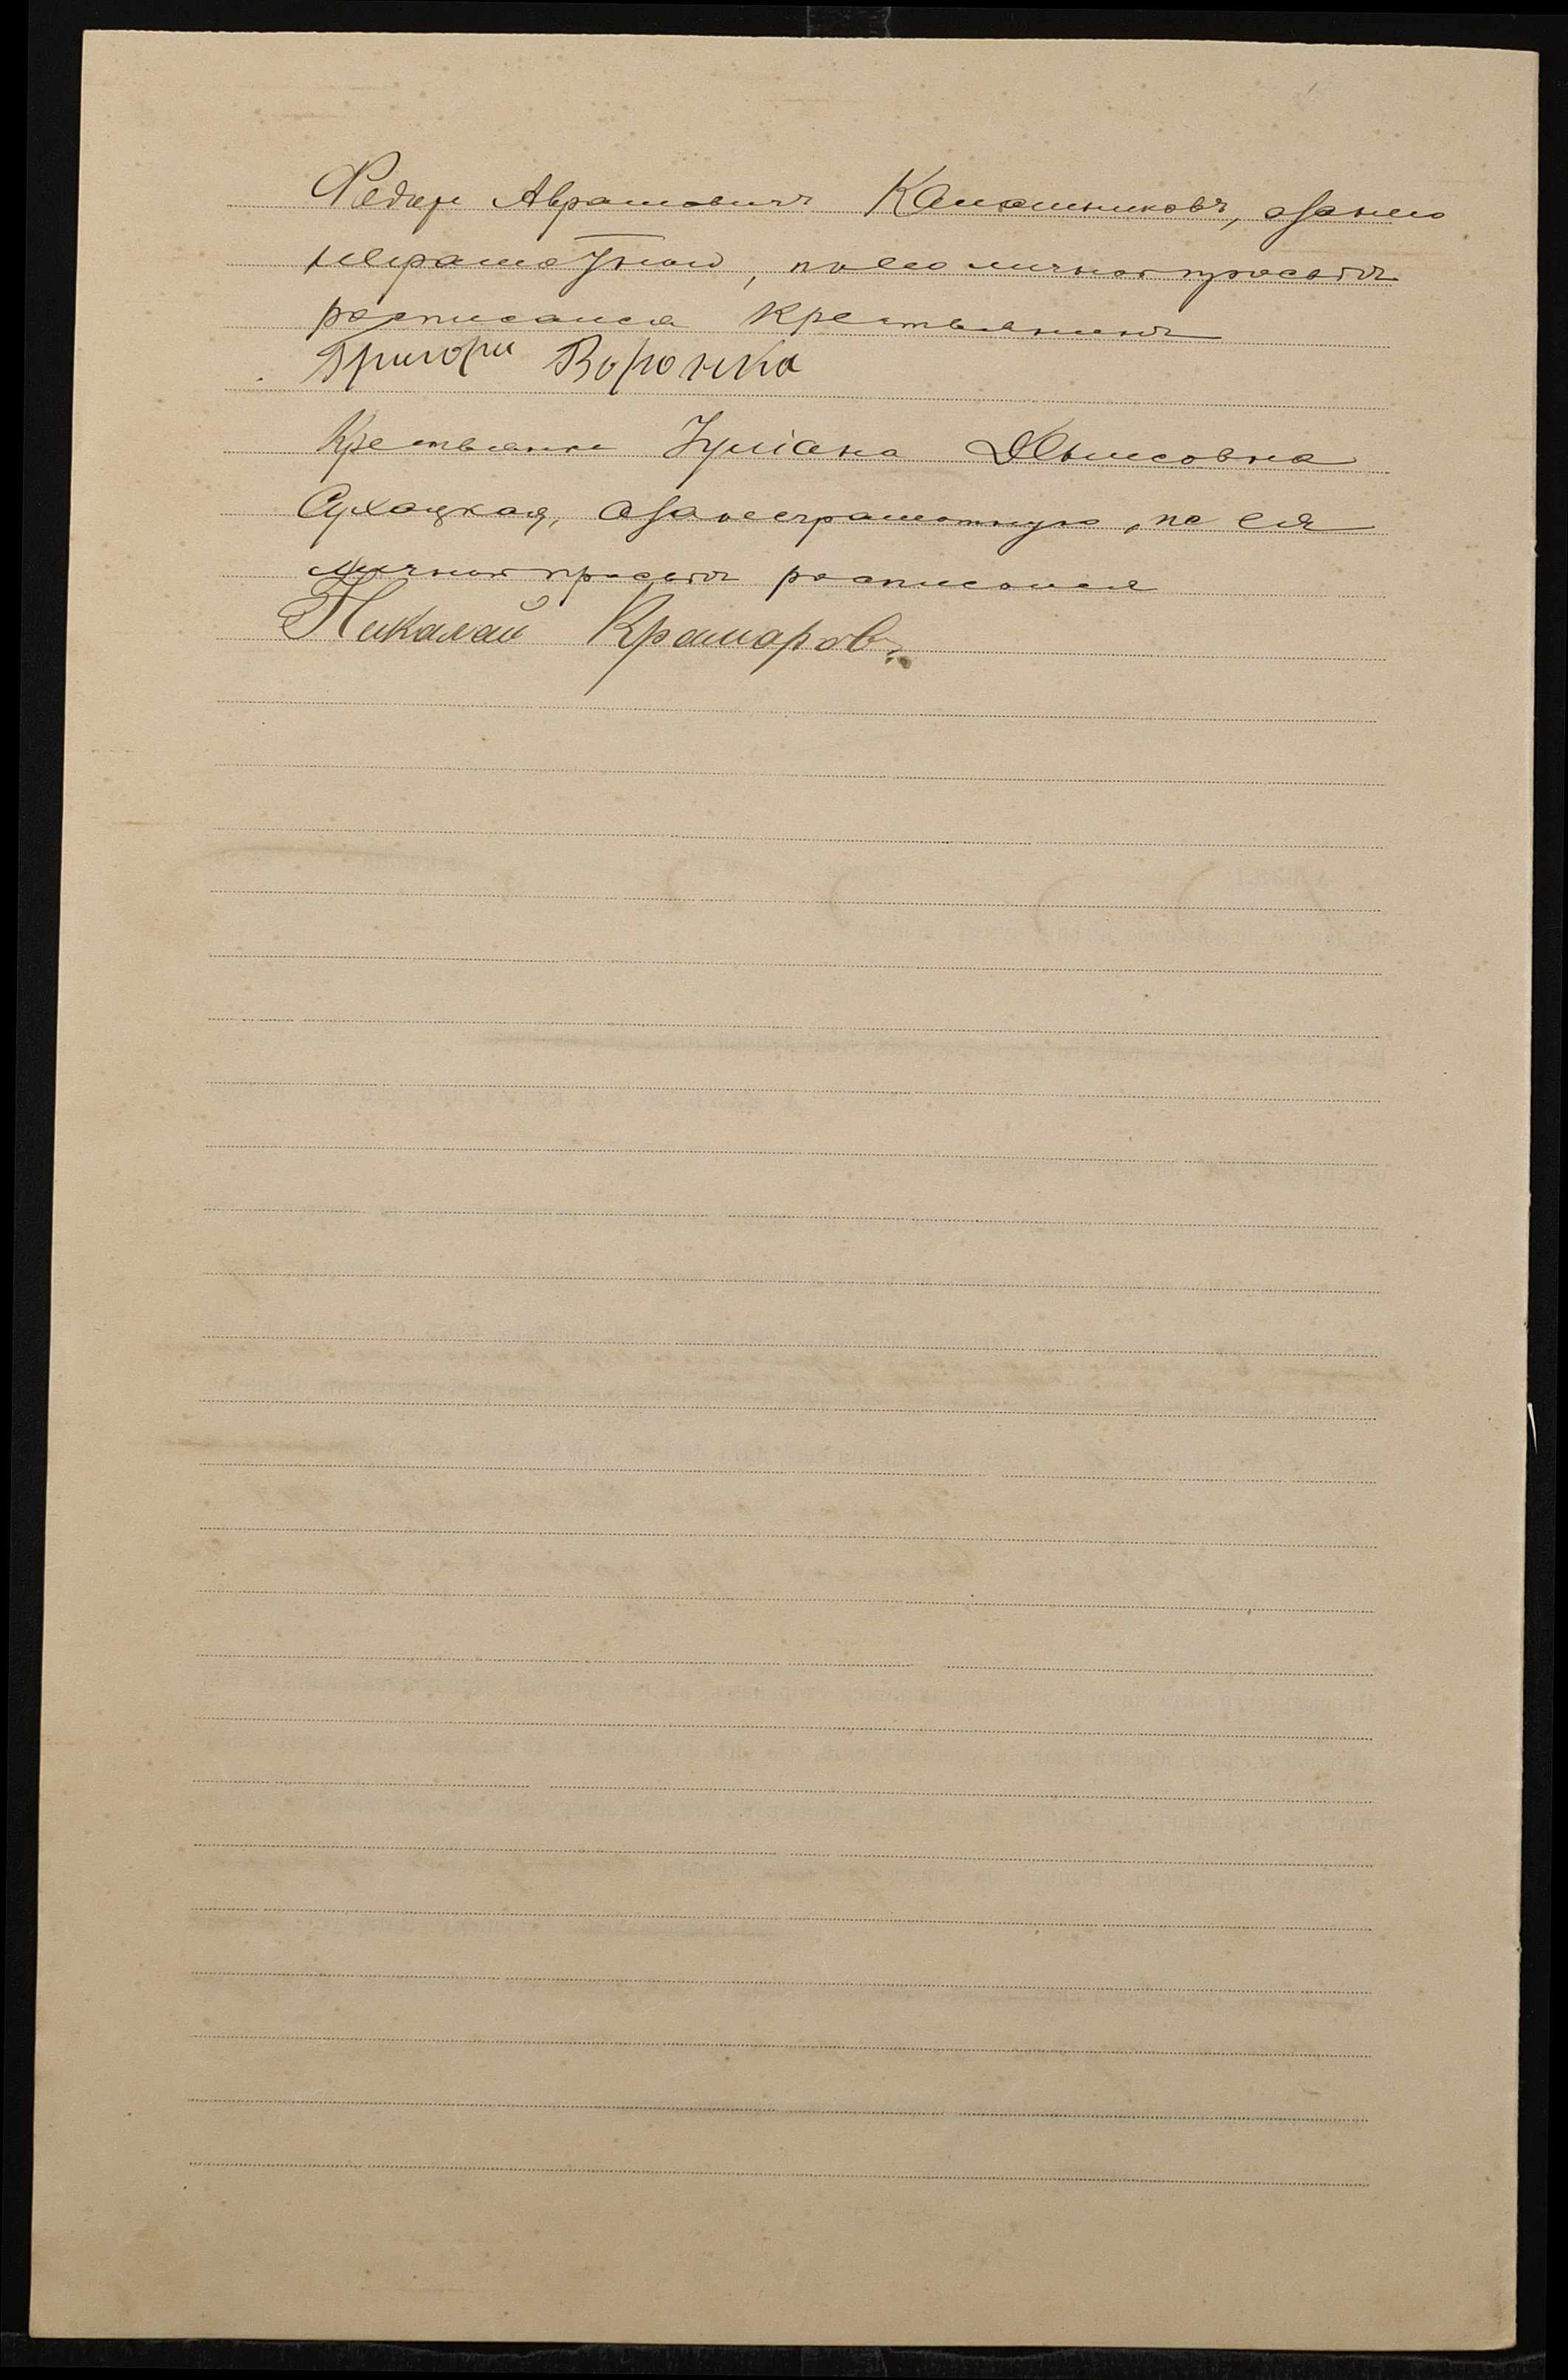 Федоръ Аврамовичъ Калашниковъ, а за него
неграмотнаго, по его личной просьбѣ
росписался крестьянинъ
Григори Воронка
Крестьянка Іуліана
Сухацкая, а за неграмотную, по ея
личной просьбѣ росписался
Николай Крамаровъ